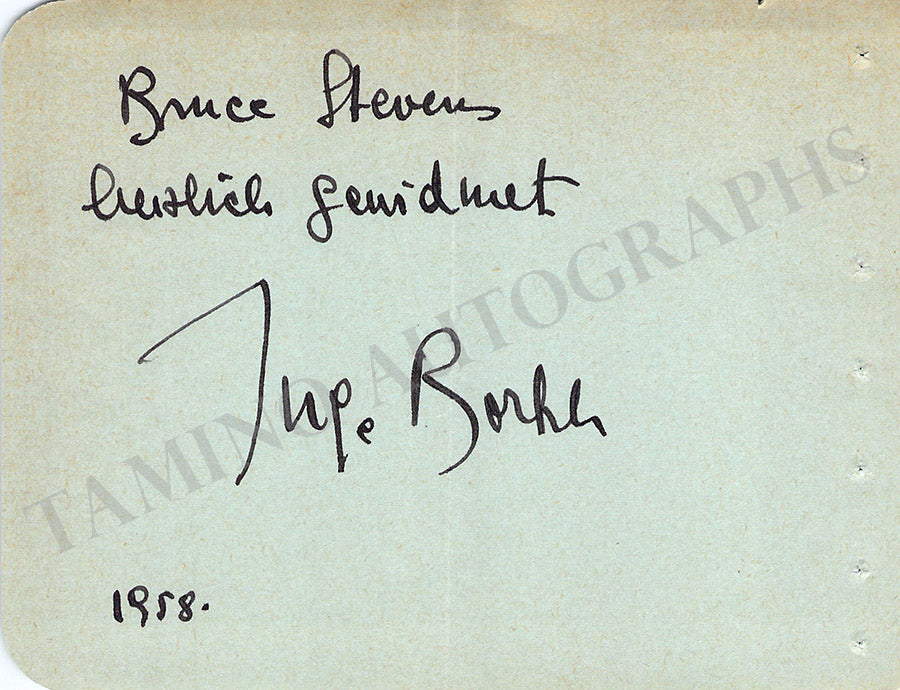 Bruce Stevens
herzlich gewidmet
Inge Borkh
1958.
TAMINO AUTOGRAPHS